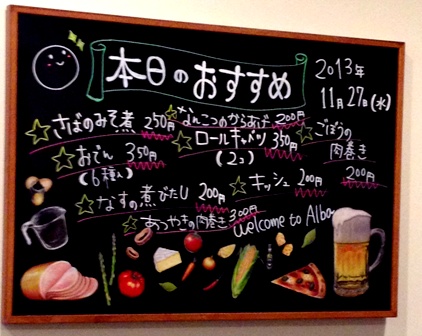 本日のおすすめ
2013年
11月27日(水)
さばのみそ煮 250円
なんこつのからあげ 200円
ごぼうの
肉巻き
200円
おでん 350円
(6種入)
ロールキャベツ 350円
(2コ)
なすの煮びたし 200円
キッシュ 200円
あつやきの肉巻き 300円
Welcome to Alba